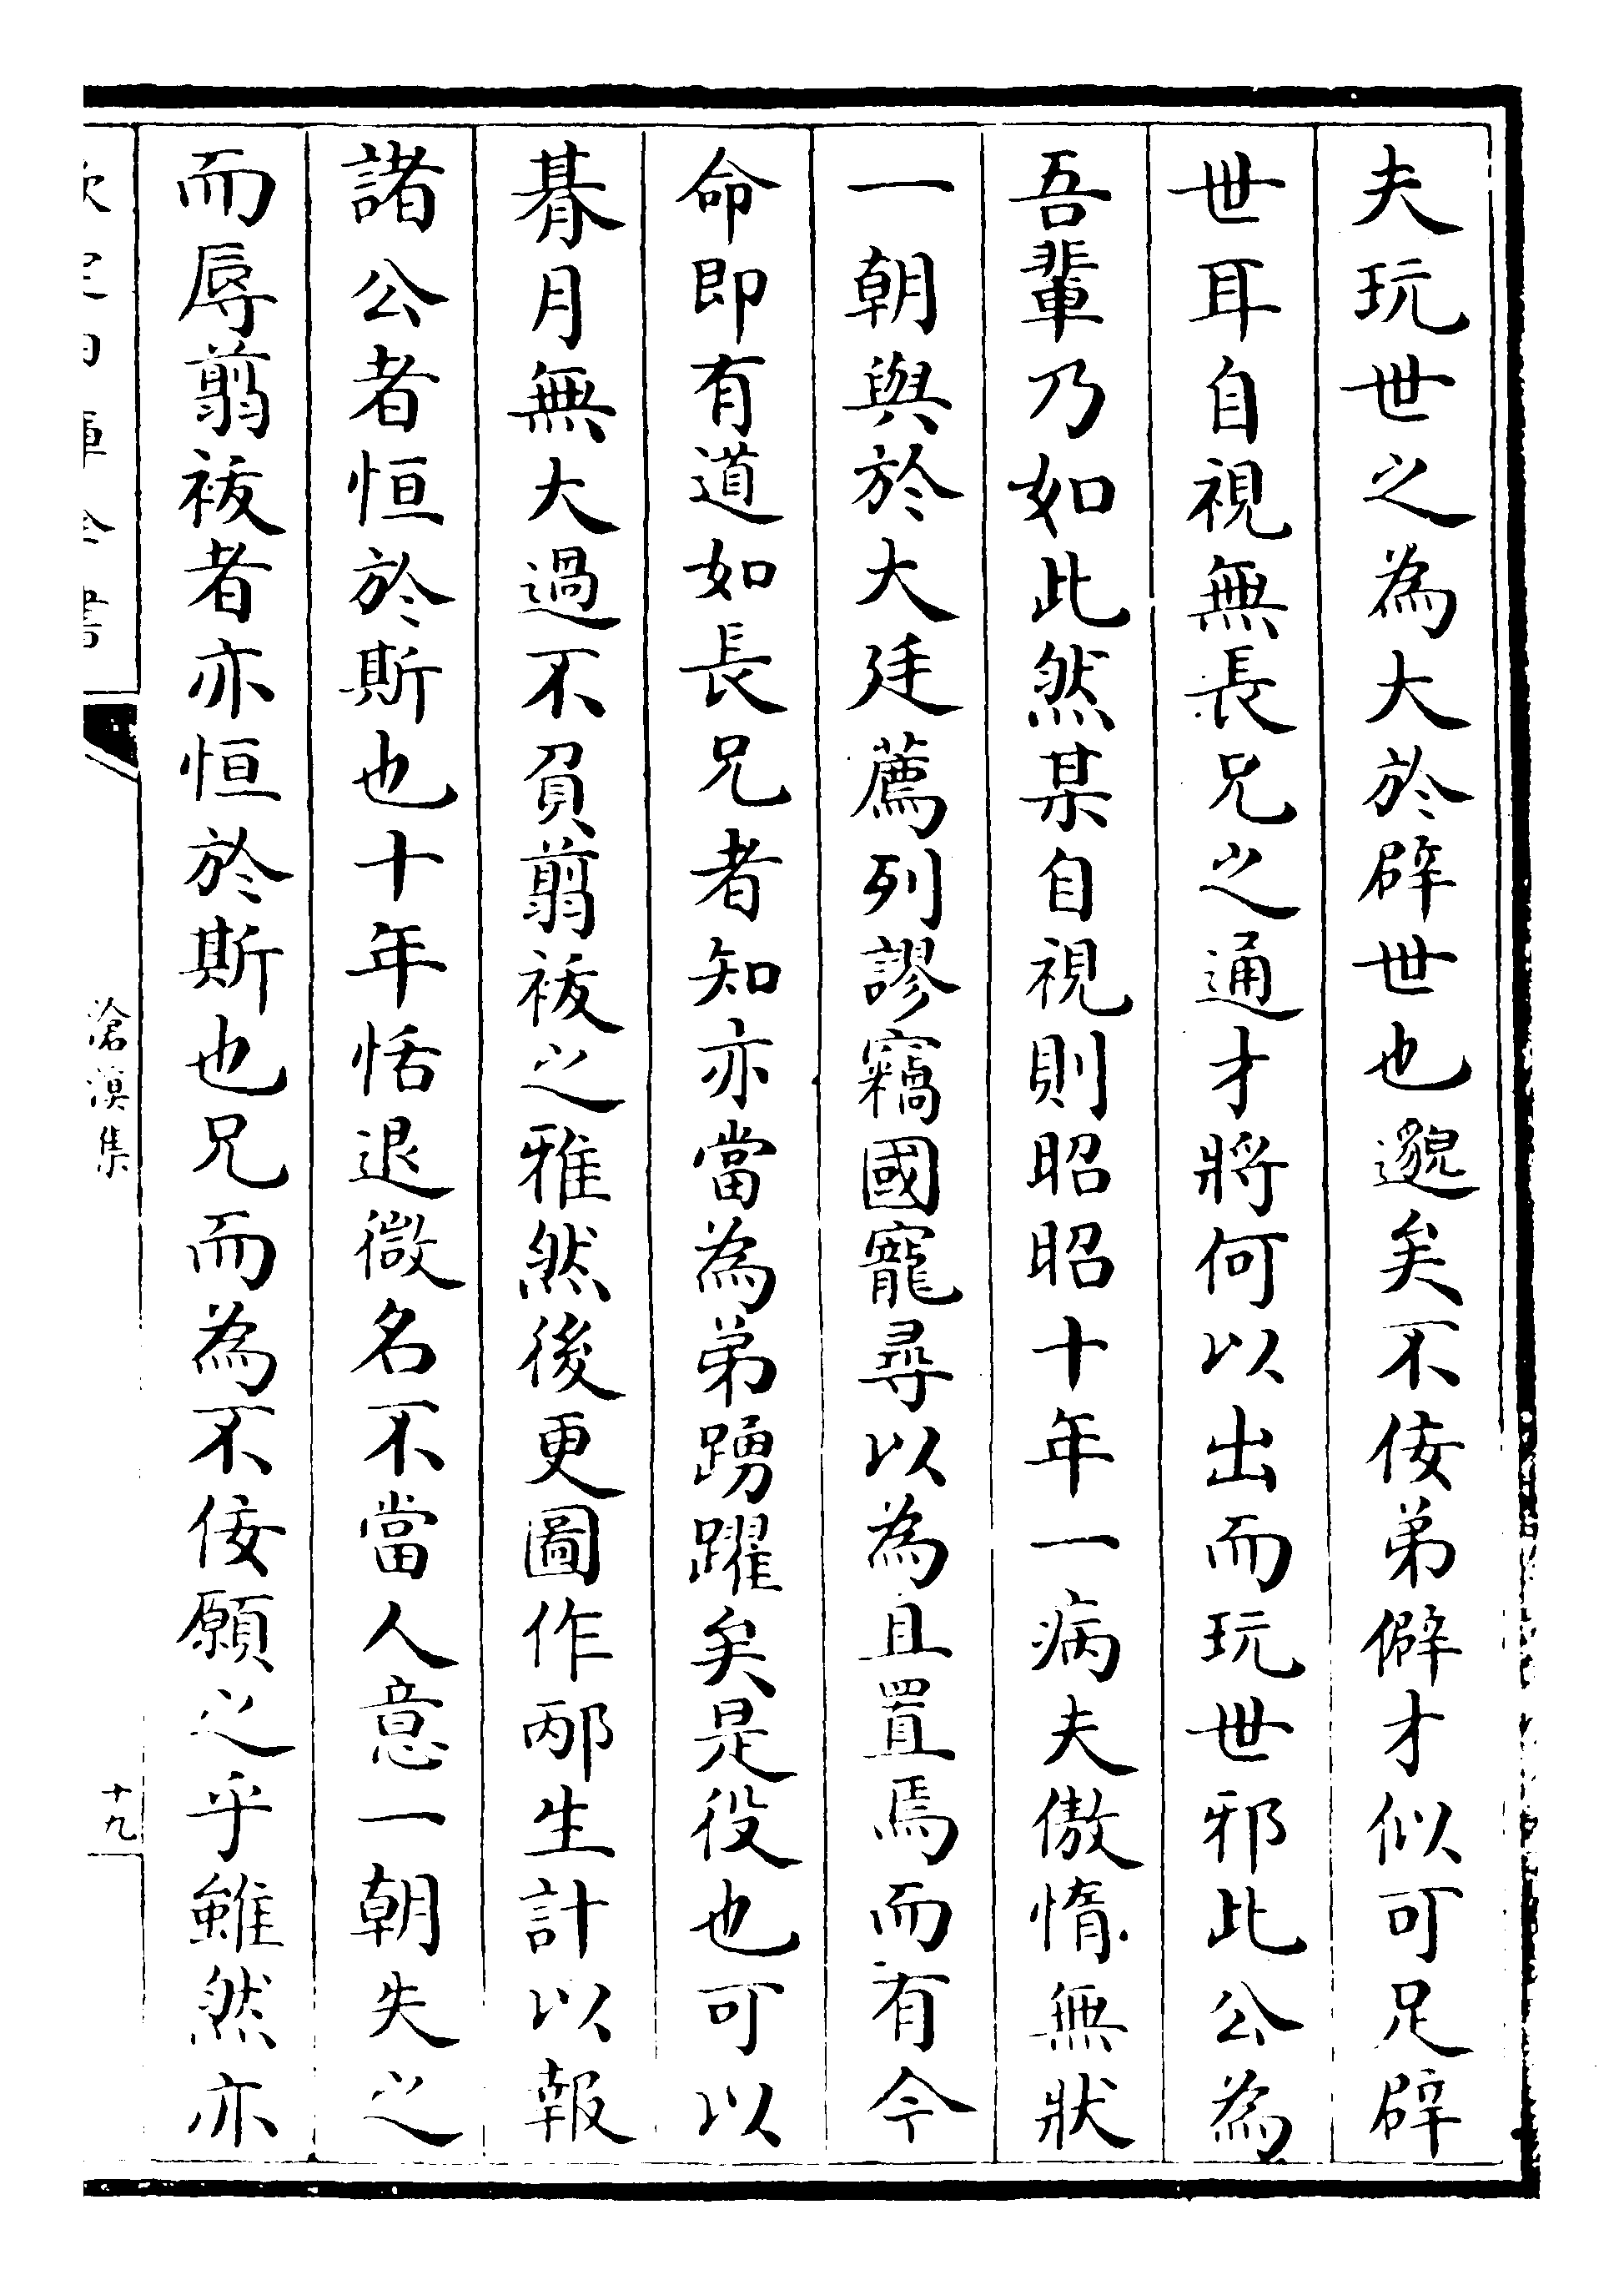 夫玩世之為大於辟世也邈矣不佞弟僻才似可足辟
世耳自視無長兄之通才將何以出而玩世邪此公為
吾輩乃如此然某自視則昭昭十年一病夫傲惰無狀
一朝與於大廷薦列謬竊國寵尋以為且置焉而有今
命即有道如長兄者知亦當為弟踴躍矣是役也可以
朞月無大過不負翦祓之雅然後更圖作邴生計以報
諸公者恒於斯也十年恬退微名不當人意一朝失之
而辱翦祓者亦恒於斯也兄而為不佞願之乎雖然亦
欽定四庫全書
滄溟集
十九